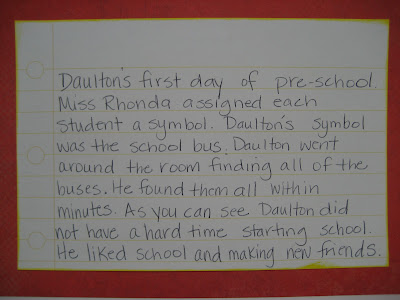 Daulton's first day of pre-school.
Miss Rhonda assigned each
student a symbol. Daulton's symbol
was the school bus. Daulton went
around the room finding all of the
buses. He found them all within
minutes. As you can see Daulton did
not have a hard time starting school.
He liked school and making new friends.